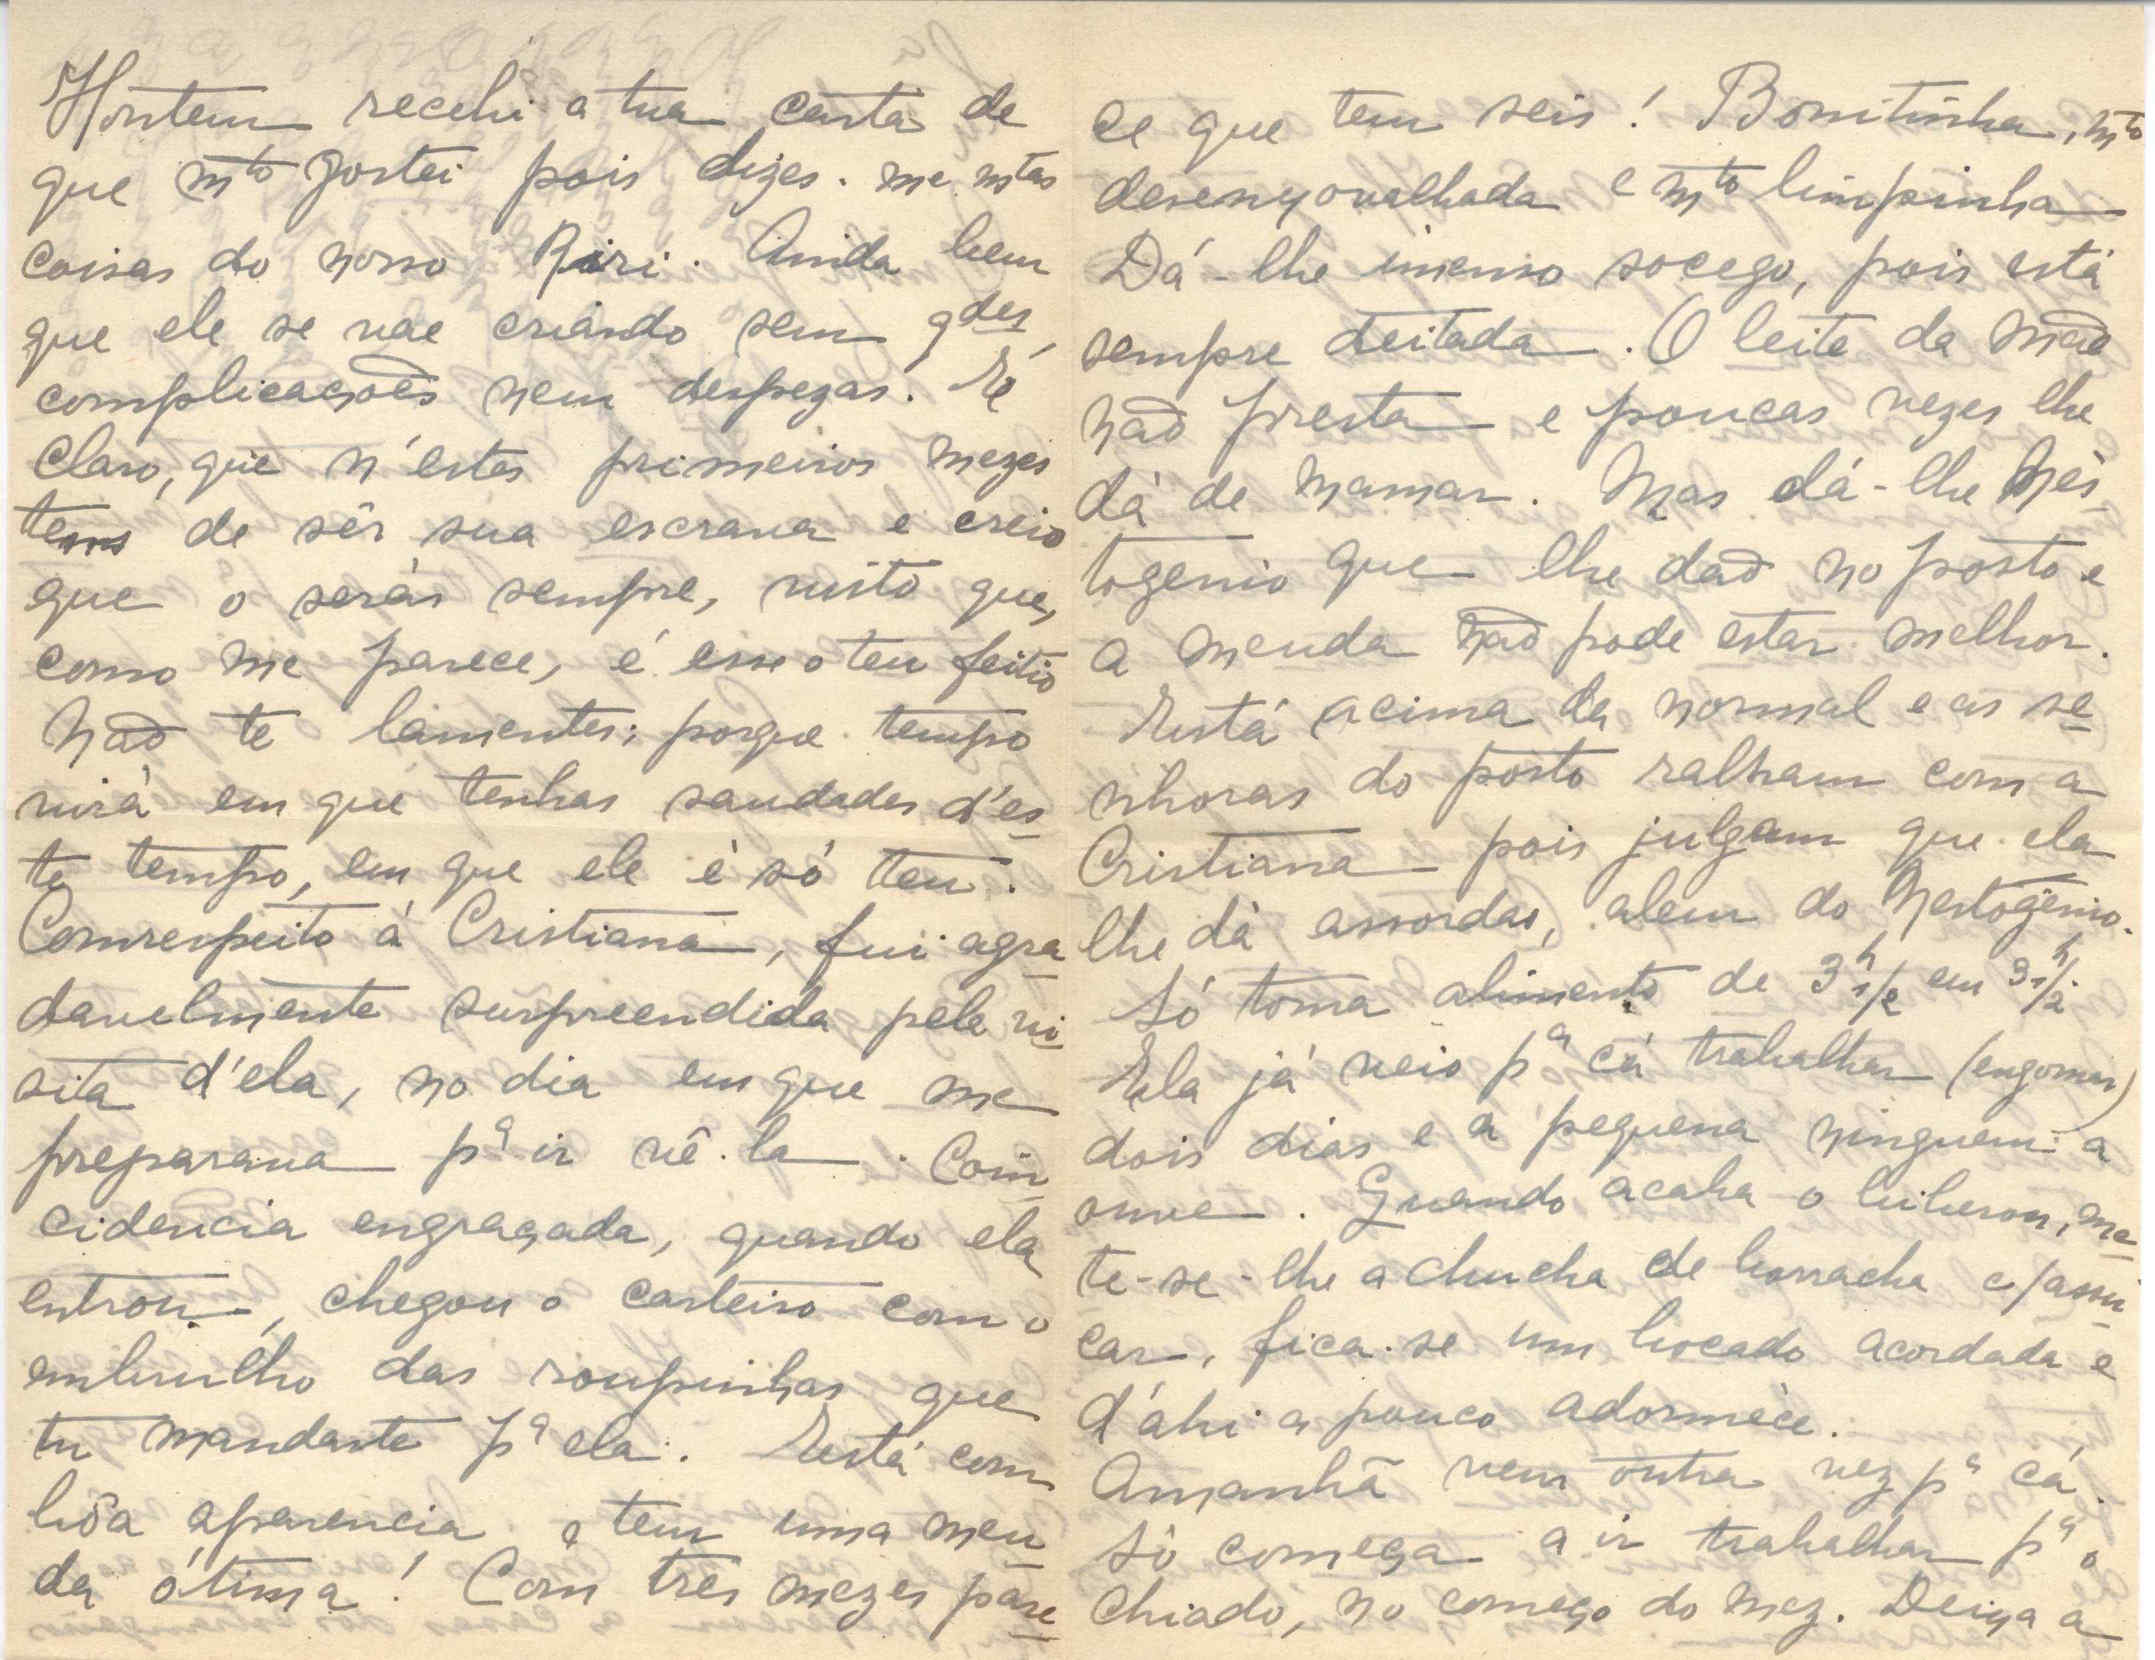 Hontem recebi a tua carta de
que mto gostei pois dizes-me mtas
coisas do nosso Riri. Ainda bem
que ele se vae criando sem gdes
complicações nem despezas. É
claro, que n'estes primeiros mezes
tens de sêr sua escrava e creio
que o serás sempre, visto que,
como me parece, é esse o teu feitio
Não te lamentes; porque tempo
virá em que tenhas saudades d'es
te tempo, em que ele é só teu.
Com respeito á Cristiana, fui agra
davelmente surpreendida pela vi
sita d'ela, no dia em que me
preparava pª ir vê-la. Coin
cidencia engraçada, quando ela
entrou, chegou o carteiro com o
embrulho das roupinhas que
tu mandaste pª ela. Está com
bôa aparencia e tem uma meu
da ótima! Com três mezes pare
ce que tem seis! Bonitinha, mto
desenxovalhada e mto limpinha
Dá-lhe imenso socego, pois está
sempre deitada. O leite da mãe
não presta e poucas vezes lhe
dá de mamar. Mas dá-lhe Nés
togenio que lhe dão no posto e
a meuda não pode estar melhor.
Está acima da normal e as se
nhoras do posto ralham com a
Cristiana pois julgam que ela
lhe dá assordas, alem do Nestogénio.
Só toma alimento de 3h 1/2 em 3h 1/2.
Ela já veio pª cá trabalhar (engomar)
dois dias e a pequena ninguem a
ouve. Quando acaba o biberon, me
te-se-lhe a chucha de borracha c/assu
car, fica-se um bocado acordada e
d'ahi a pouco adorméce.
Amanhã vem outra vez pª cá.
Só começa a ir trabalhar pª o
Chiado, no começo do mez. Deixa a